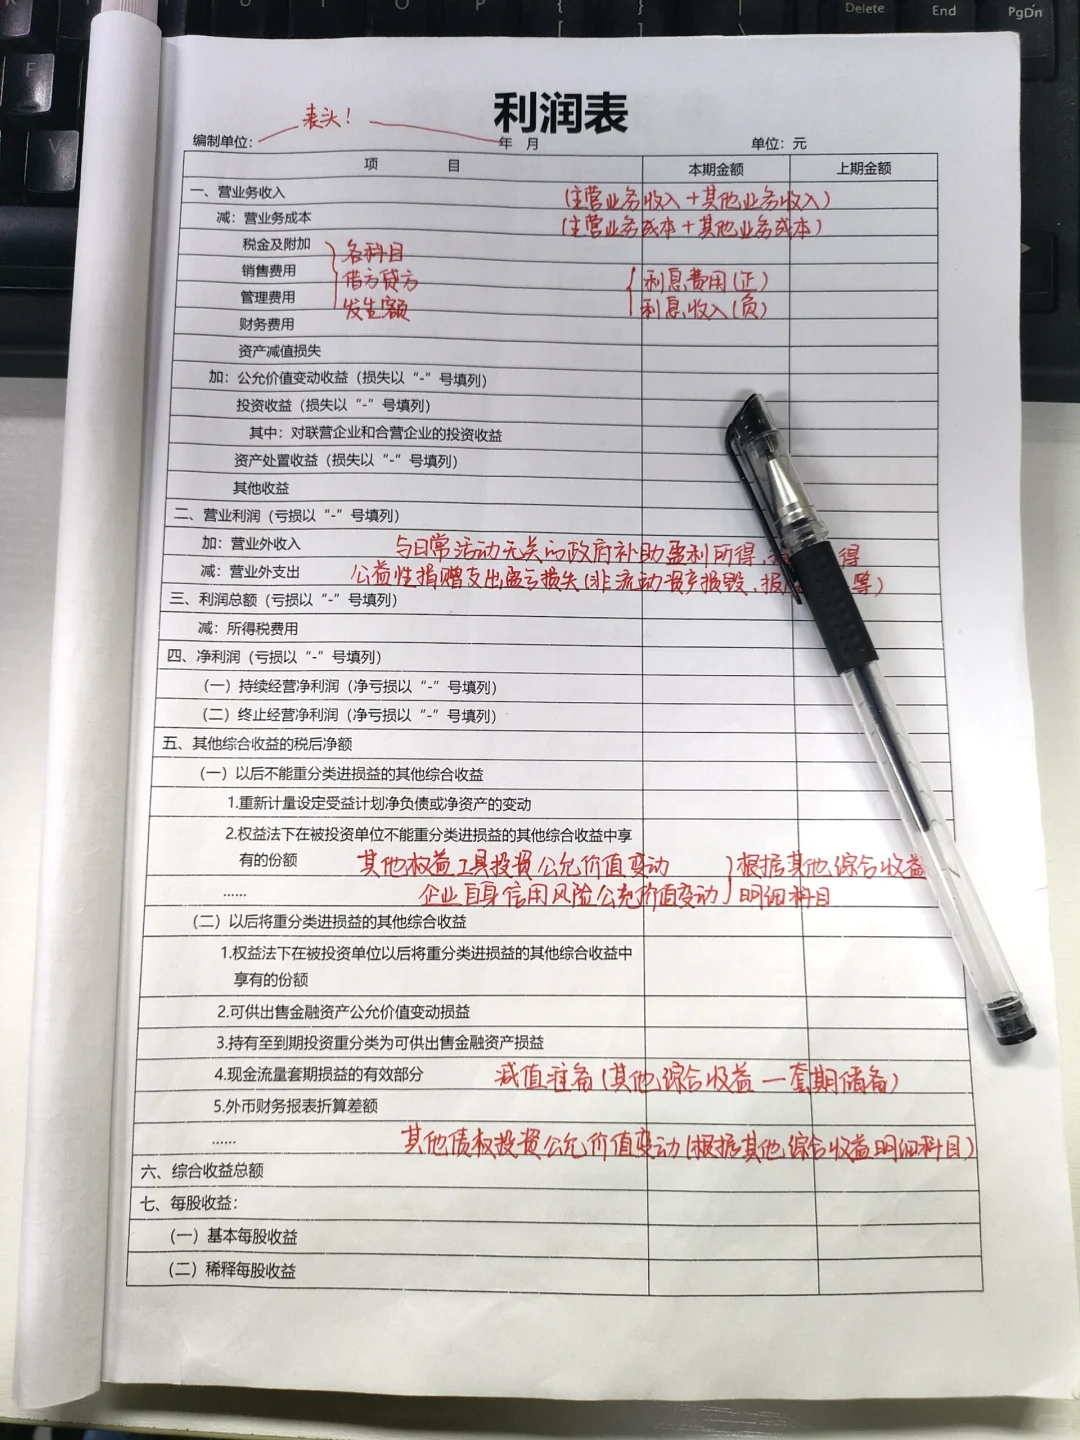 Delete End PgDn
R U I O P { [ } ] |
F
V
利润表
表头!
编制单位: 年 月 单位: 元
项 目 本期金额 上期金额
一、营业务收入 (主营业务收入+其他业务收入)
减: 营业务成本 (主营业务成本+其他业务成本)
税金及附加 各科目
销售费用 借方贷方 利息费用(正)
管理费用 发生额 利息收入(负)
财务费用
资产减值损失
加: 公允价值变动收益 (损失以“-”号填列)
投资收益 (损失以“-”号填列)
其中: 对联营企业和合营企业的投资收益
资产处置收益 (损失以“-”号填列)
其他收益
二、营业利润 (亏损以“-”号填列)
加: 营业外收入 与日常活动无关的政府补助盈利所得、 得
减: 营业外支出 公益性捐赠支出盈亏损失(非流动资产损毁、报 等)
三、利润总额 (亏损以“-”号填列)
减: 所得税费用
四、净利润 (亏损以“-”号填列)
(一) 持续经营净利润 (净亏损以“-”号填列)
(二) 终止经营净利润 (净亏损以“-”号填列)
五、其他综合收益的税后净额
(一) 以后不能重分类进损益的其他综合收益
1.重新计量设定受益计划净负债或净资产的变动
2.权益法下在被投资单位不能重分类进损益的其他综合收益中享
有的份额 其他权益工具投资公允价值变动 根据其他综合收益
...... 企业自身信用风险公允价值变动 明细科目
(二) 以后将重分类进损益的其他综合收益
1.权益法下在被投资单位以后将重分类进损益的其他综合收益中
享有的份额
2.可供出售金融资产公允价值变动损益
3.持有至到期投资重分类为可供出售金融资产损益
4.现金流量套期损益的有效部分 减值准备(其他综合收益—套期储备)
5.外币财务报表折算差额
...... 其他债权投资公允价值变动(根据其他综合收益明细科目)
六、综合收益总额
七、每股收益:
(一) 基本每股收益
(二) 稀释每股收益